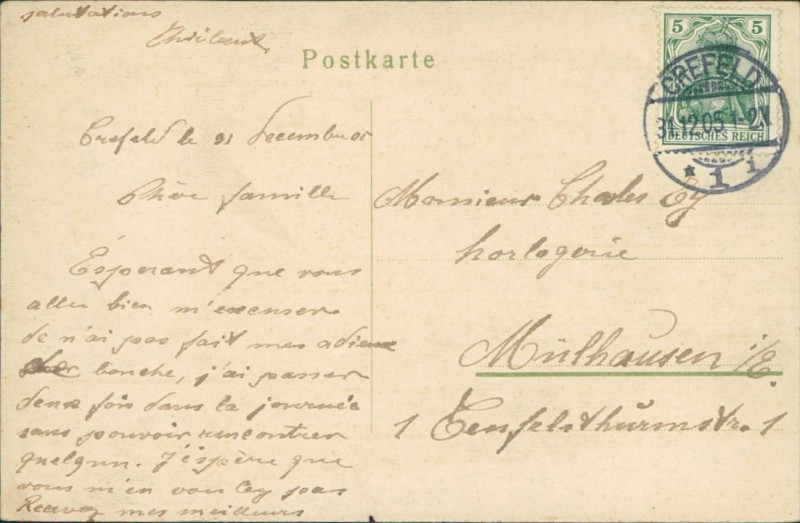 Postkarte
5 5
CREFELD
31.12.05 1-2
DEUTSCHES REICH
* 1 i
Crefeld le 31 Decembre 05
Chère famille
Esperant que vous
allez bien m'excuser
de n'ai pas fait mes adieux
bouche, j'ai passer
deux fois dans la journée
sans pouvoir rencontrer
quelqun. J'éspère que
vous m'en voulez pas
Recevez mes meilleurs
salutations
Monsieur Charles Ey
horlogerie
Mülhausen i/E.
1 Teufelsthürmstr. 1